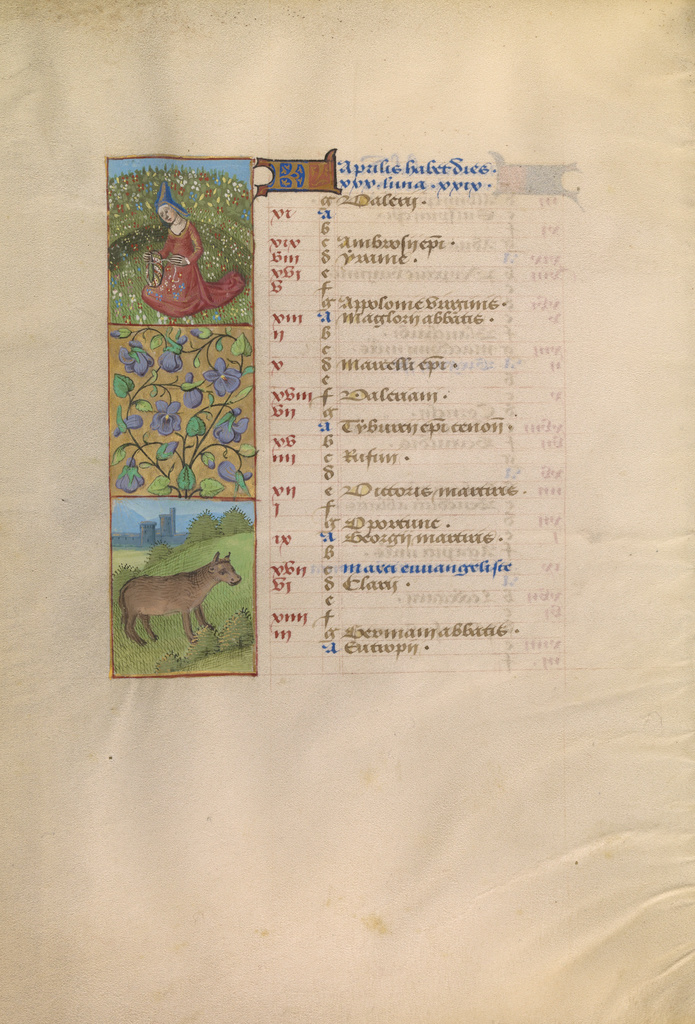 KL Aprilis habet dies.
xxx. luna .xxix.
g Valerij.
xi A
b
xix c Ambrosij epi.
viii d Yrenne.
xvi e
v f
g Appolonie virginis.
xiii A Maglorij abbatis.
ii b
c
x d Marcelli epi.
e
xviii f Valeriani.
vii g
A Tyburcij epi cenon.
xv b
iiii c Rufini.
d
xii e Victoris martiris.
i f
g Oportune.
ix A Georgij martiris.
b
xvii c Marci euuangeliste
vi d Clarij.
e
xiiii f
iii g Germani abbatis.
A Eutropij.